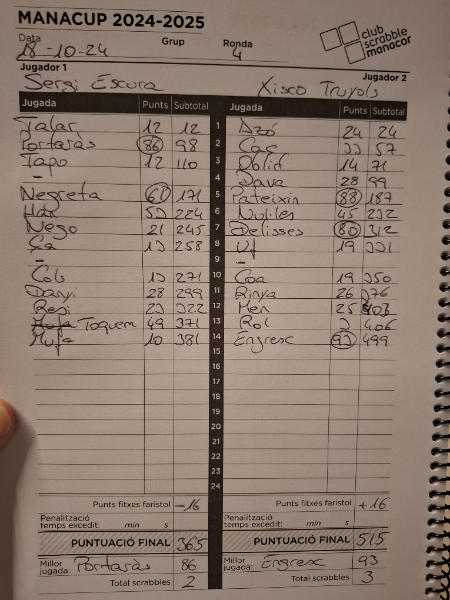 MANACUP 2024-2025
club scrabble manacor
Data Grup Ronda
18-10-24 4
Jugador 1 Jugador 2
Sergi Escura Xisco Truyols
Jugada Punts Subtotal Jugada Punts Subtotal
Talar 12 12 1 Azó 24 24
Portaràs 86 98 2 Cac 33 57
Tapo 12 110 3 Oblid 14 71
- 4 Dava 28 99
Negreta 61 171 5 Pateixin 88 187
53 224 6 45 232
Nego 21 245 7 Delisses 80 312
Ça 13 258 8 Uf 19 331
- 9 -
Cols 13 271 10 Coa 19 350
Danyi 28 299 11 Rinya 26 376
Repi 23 322 12 Men 25 403
Toquem 49 371 13 Rol 3 406
Mufa 10 381 14 Engresc 93 499
15
16
17
18
19
20
21
22
23
24
Punts fitxes faristol -16 Punts fitxes faristol +16
Penalització temps excedit: min s Penalització temps excedit: min s
PUNTUACIÓ FINAL 365 PUNTUACIÓ FINAL 515
Millor jugada: Portaràs 86 Millor jugada: Engresc 93
Total scrabbles 2 Total scrabbles 3